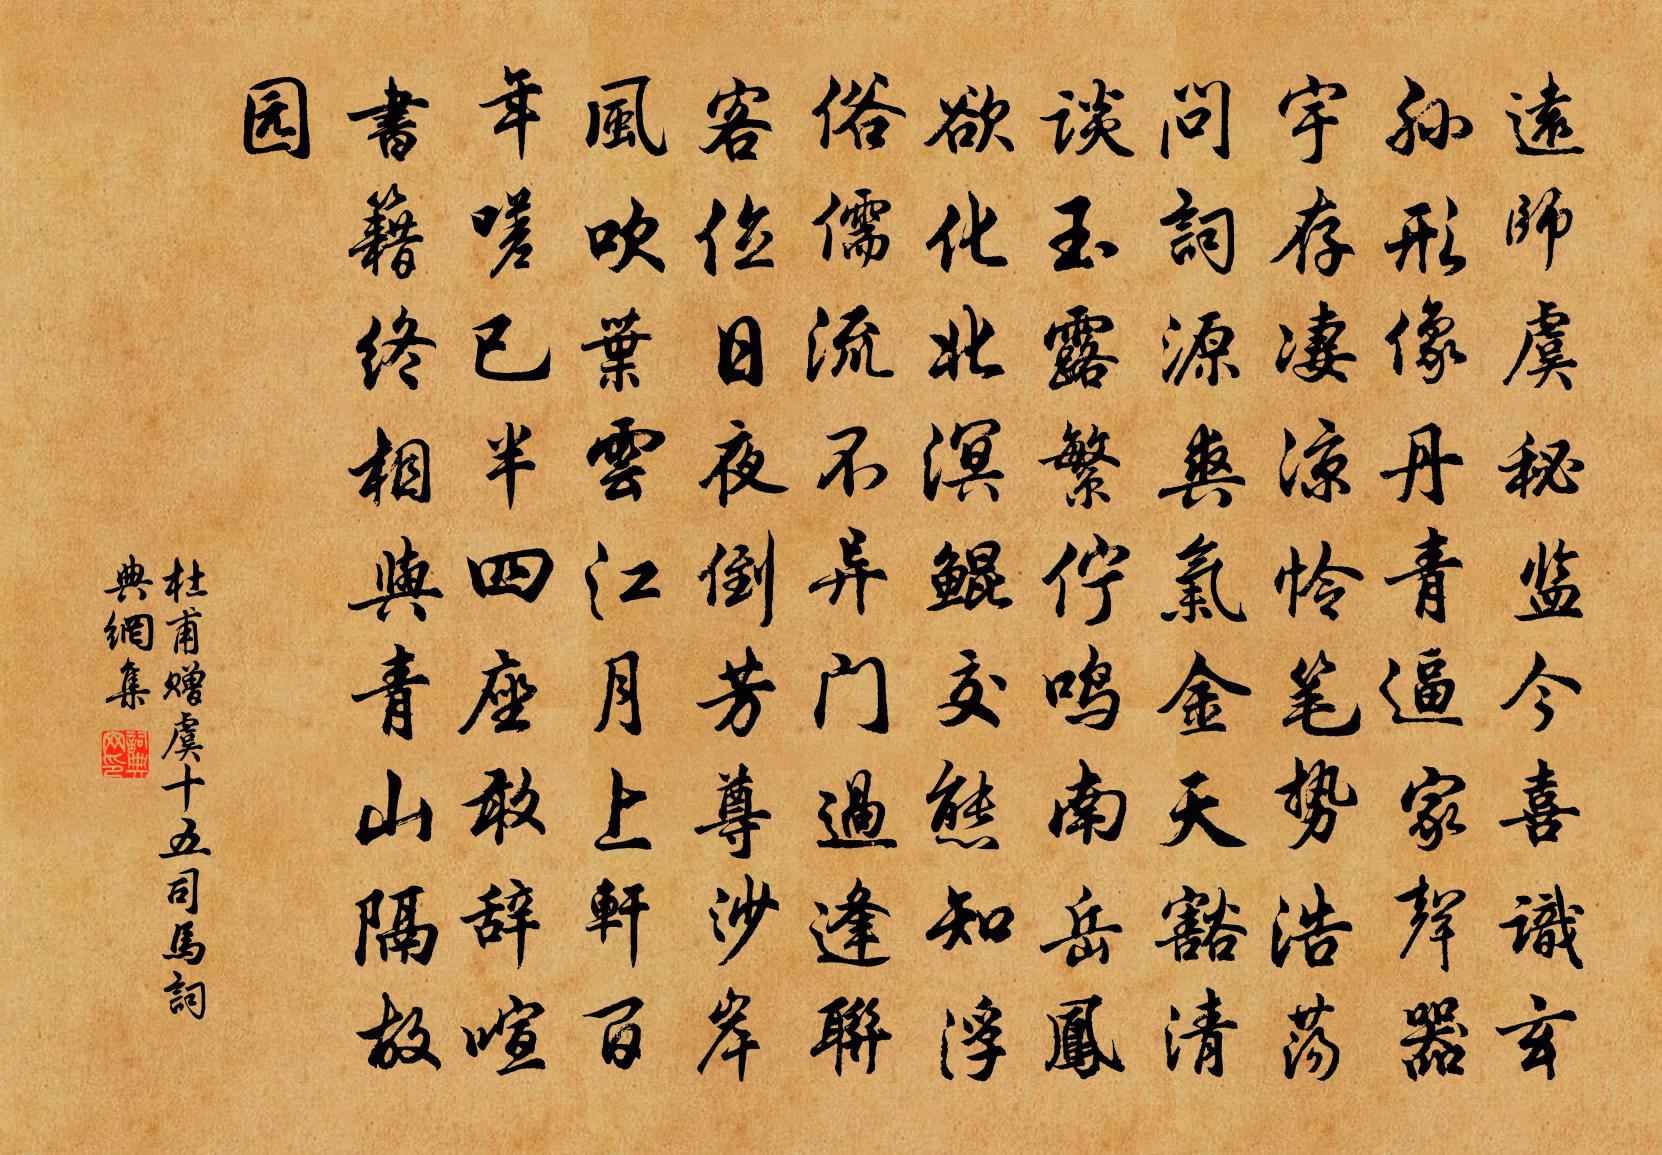 遠師虞秘监今喜識玄
孙形像丹青逼家聲器
宇存凄凉怜笔势浩荡
问詞源爽氣金天豁清
谈玉露繁佇鸣南岳鳳
欲化北溟鲲交態知浮
俗儒流不异门過逢聯
客位日夜倒芳尊沙岸
風吹葉雲江月上軒百
年嗟已半四座敢辞喧
書籍终相與青山隔故
园
杜甫赠虞十五司馬詞
典網集
詞典网印